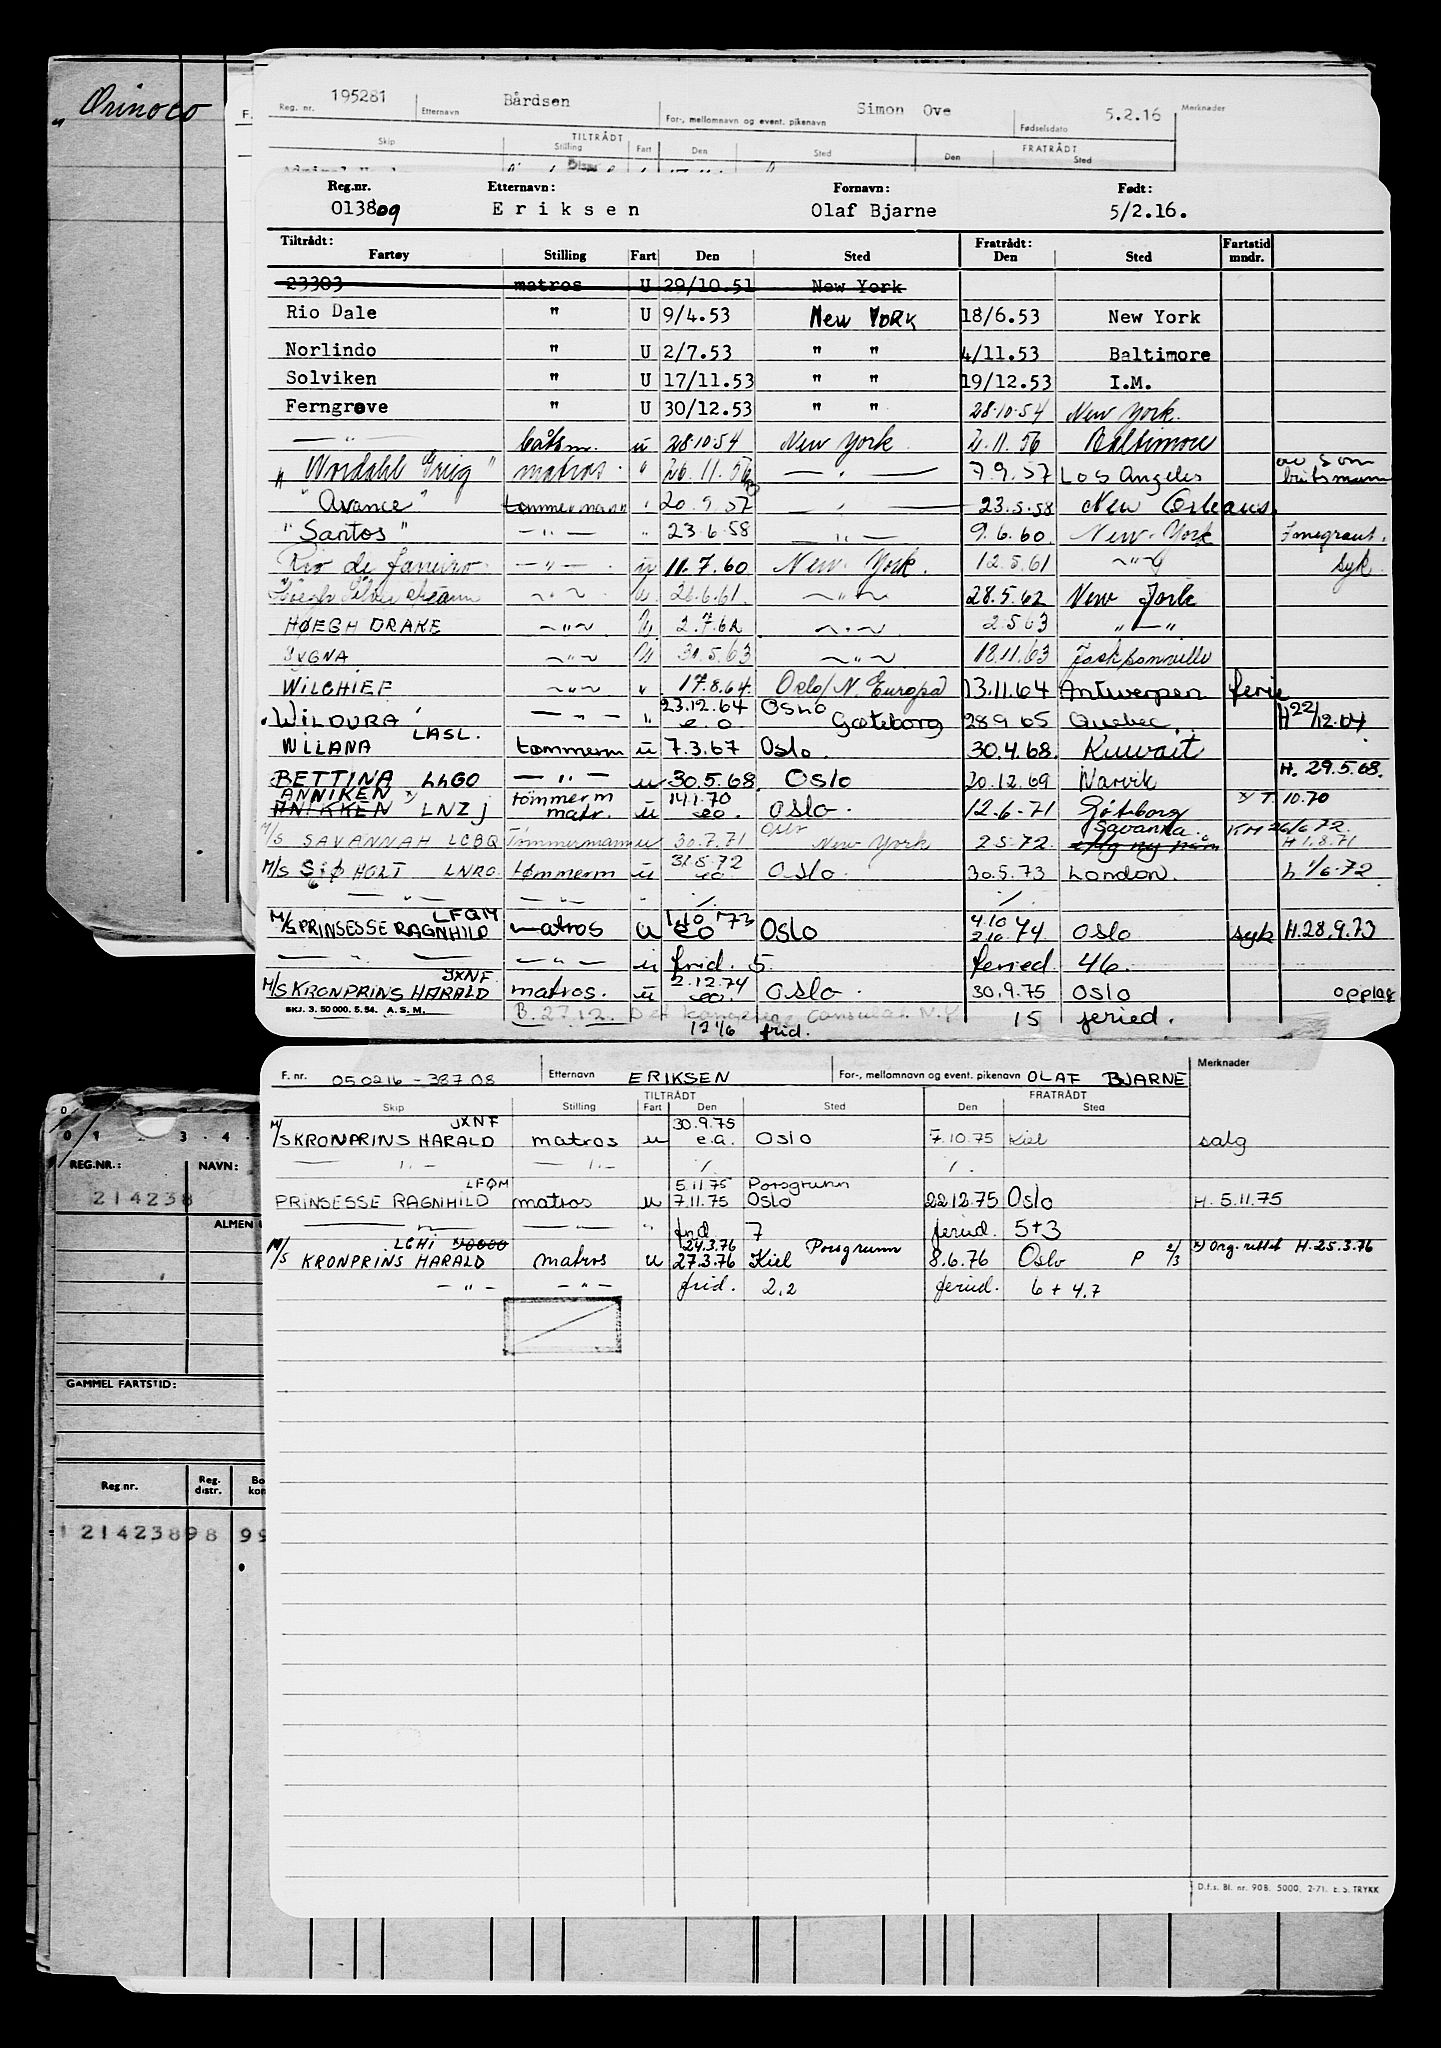 " Orinoco
Reg. nr. 195281 Etternavn Bårdsen For-, mellomnavn og event. pikenavn Simon Ove Fødselsdato 5.2.16 Merknader
TILTRÅDT FRATRÅDT
Skip Stilling Fart Den Sted Den Sted
Reg.nr. Etternavn: Fornavn: Født:
013809 Eriksen Olaf Bjarne 5/2.16.
Tiltrådt: Fratrådt: Fartstid
Fartøy Stilling Fart Den Sted Den Sted mndr.
23303 matros U 29/10.51 New York
Rio Dale " U 9/4.53 New York 18/6.53 New York
Norlindo " U 2/7.53 " " 4/11.53 Baltimore
Solviken " U 17/11.53 " " 19/12.53 I.M.
Ferngrove " U 30/12.53 " " 28.10.54 New York.
— " — båtsm. u 28.10.54 New York 2.11.56 Baltimore
" Nordahl Grieg " matros. " 26.11.56 — " — 7.9.57 Los Angeles
"Avance" tømmermann " 20.9.57 — " — 23.5.58 New Orleans.
"Santos" — " — " 23.6.58 — " — 9.6.60. New York
Rio de Janeiro — " — u 11.7.60 New York. 12.5.61 — " — syk
Høegh Silver 28.5.62 New York
HØEGH DRAKE — " — 2.7.62 — " — 2.5.63 " — "
SYGNA — " — 31.5.63 — " — 18.11.63 Jacksonville
WILCHIEF — " — " 17.8.64 Oslo/N. Europa 13.11.64 Antwerpen ferie
WILDURA — " — " 23.12.64 e.o Oslo Gøteborg 28.9.65 Quebec. H 22/12.64
WILLANA LASL. tømmerm u 7.3.67 Oslo. 30.4.68. Kuwait
BETTINA LHGO — " — u 30.5.68 Oslo 20.12.69 Narvik H. 29.5.68.
ANNIKEN
ANIKKEN LNZJ tømmerm matr. u 14.1.70 eo. Oslo. 12.6.71 Göteborg 10.70
M/S SAVANNAH LCBQ Tømmermann u 30.7.71 New York 2.5.72. Savanna. H 1.8.71
M/S SIØHOLT LNRO tømmerm u 31.5.72 eo Oslo. 30.5.73 London. h 1/6.72
— " — — " — " /. /.
M/S PRINSESSE RAGNHILD LFQM matros u 1.10.73 eo Oslo 4.10 2.10 74 Oslo syk H.28.9.73
— " — — " — u frid. 5 feried 46.
M/S KRONPRINS HARALD JXNF matros. u 2.12.74 eo. Oslo. 30.9.75 Oslo opplag
SKJ. 3. 50 000. 5. 54. A. S. M. 12 1/6 frid. 15 feried.
F. nr. 050216 - 38708 Etternavn ERIKSEN For-, mellomnavn og event. pikenavn OLAF BJARNE Merknader
TILTRÅDT FRATRÅDT
Skip Stilling Fart Den Sted Den Sted
M/S KRONPRINS HARALD JXNF matros u 30.9.75 e.a. Oslo 7.10.75 Kiel salg
— " — — " — /. /.
PRINSESSE RAGNHILD LFQM matros u 5.11.75 Porsgrunn 7.11.75 Oslo 22.12.75 Oslo H. 5.11.75
— " — — " — " frid 7 feried. 5+3
M/S KRONPRINS HARALD LGHI matros u 24.3.76 Porsgrunn 27.3.76 Kiel 8.6.76 Oslo P 2/3 x) Org. rettet H.25.3.76
— " — — " — frid. 2,2 feried. 6 + 4,7
D.f.s. Bl. nr. 908. 5000. 2-71. E. S. TRYKK
REG.NR.: NAVN:
214238
ALMEN
GAMMEL FARTSTID:
Reg.nr. Reg. distr.
121423898 99